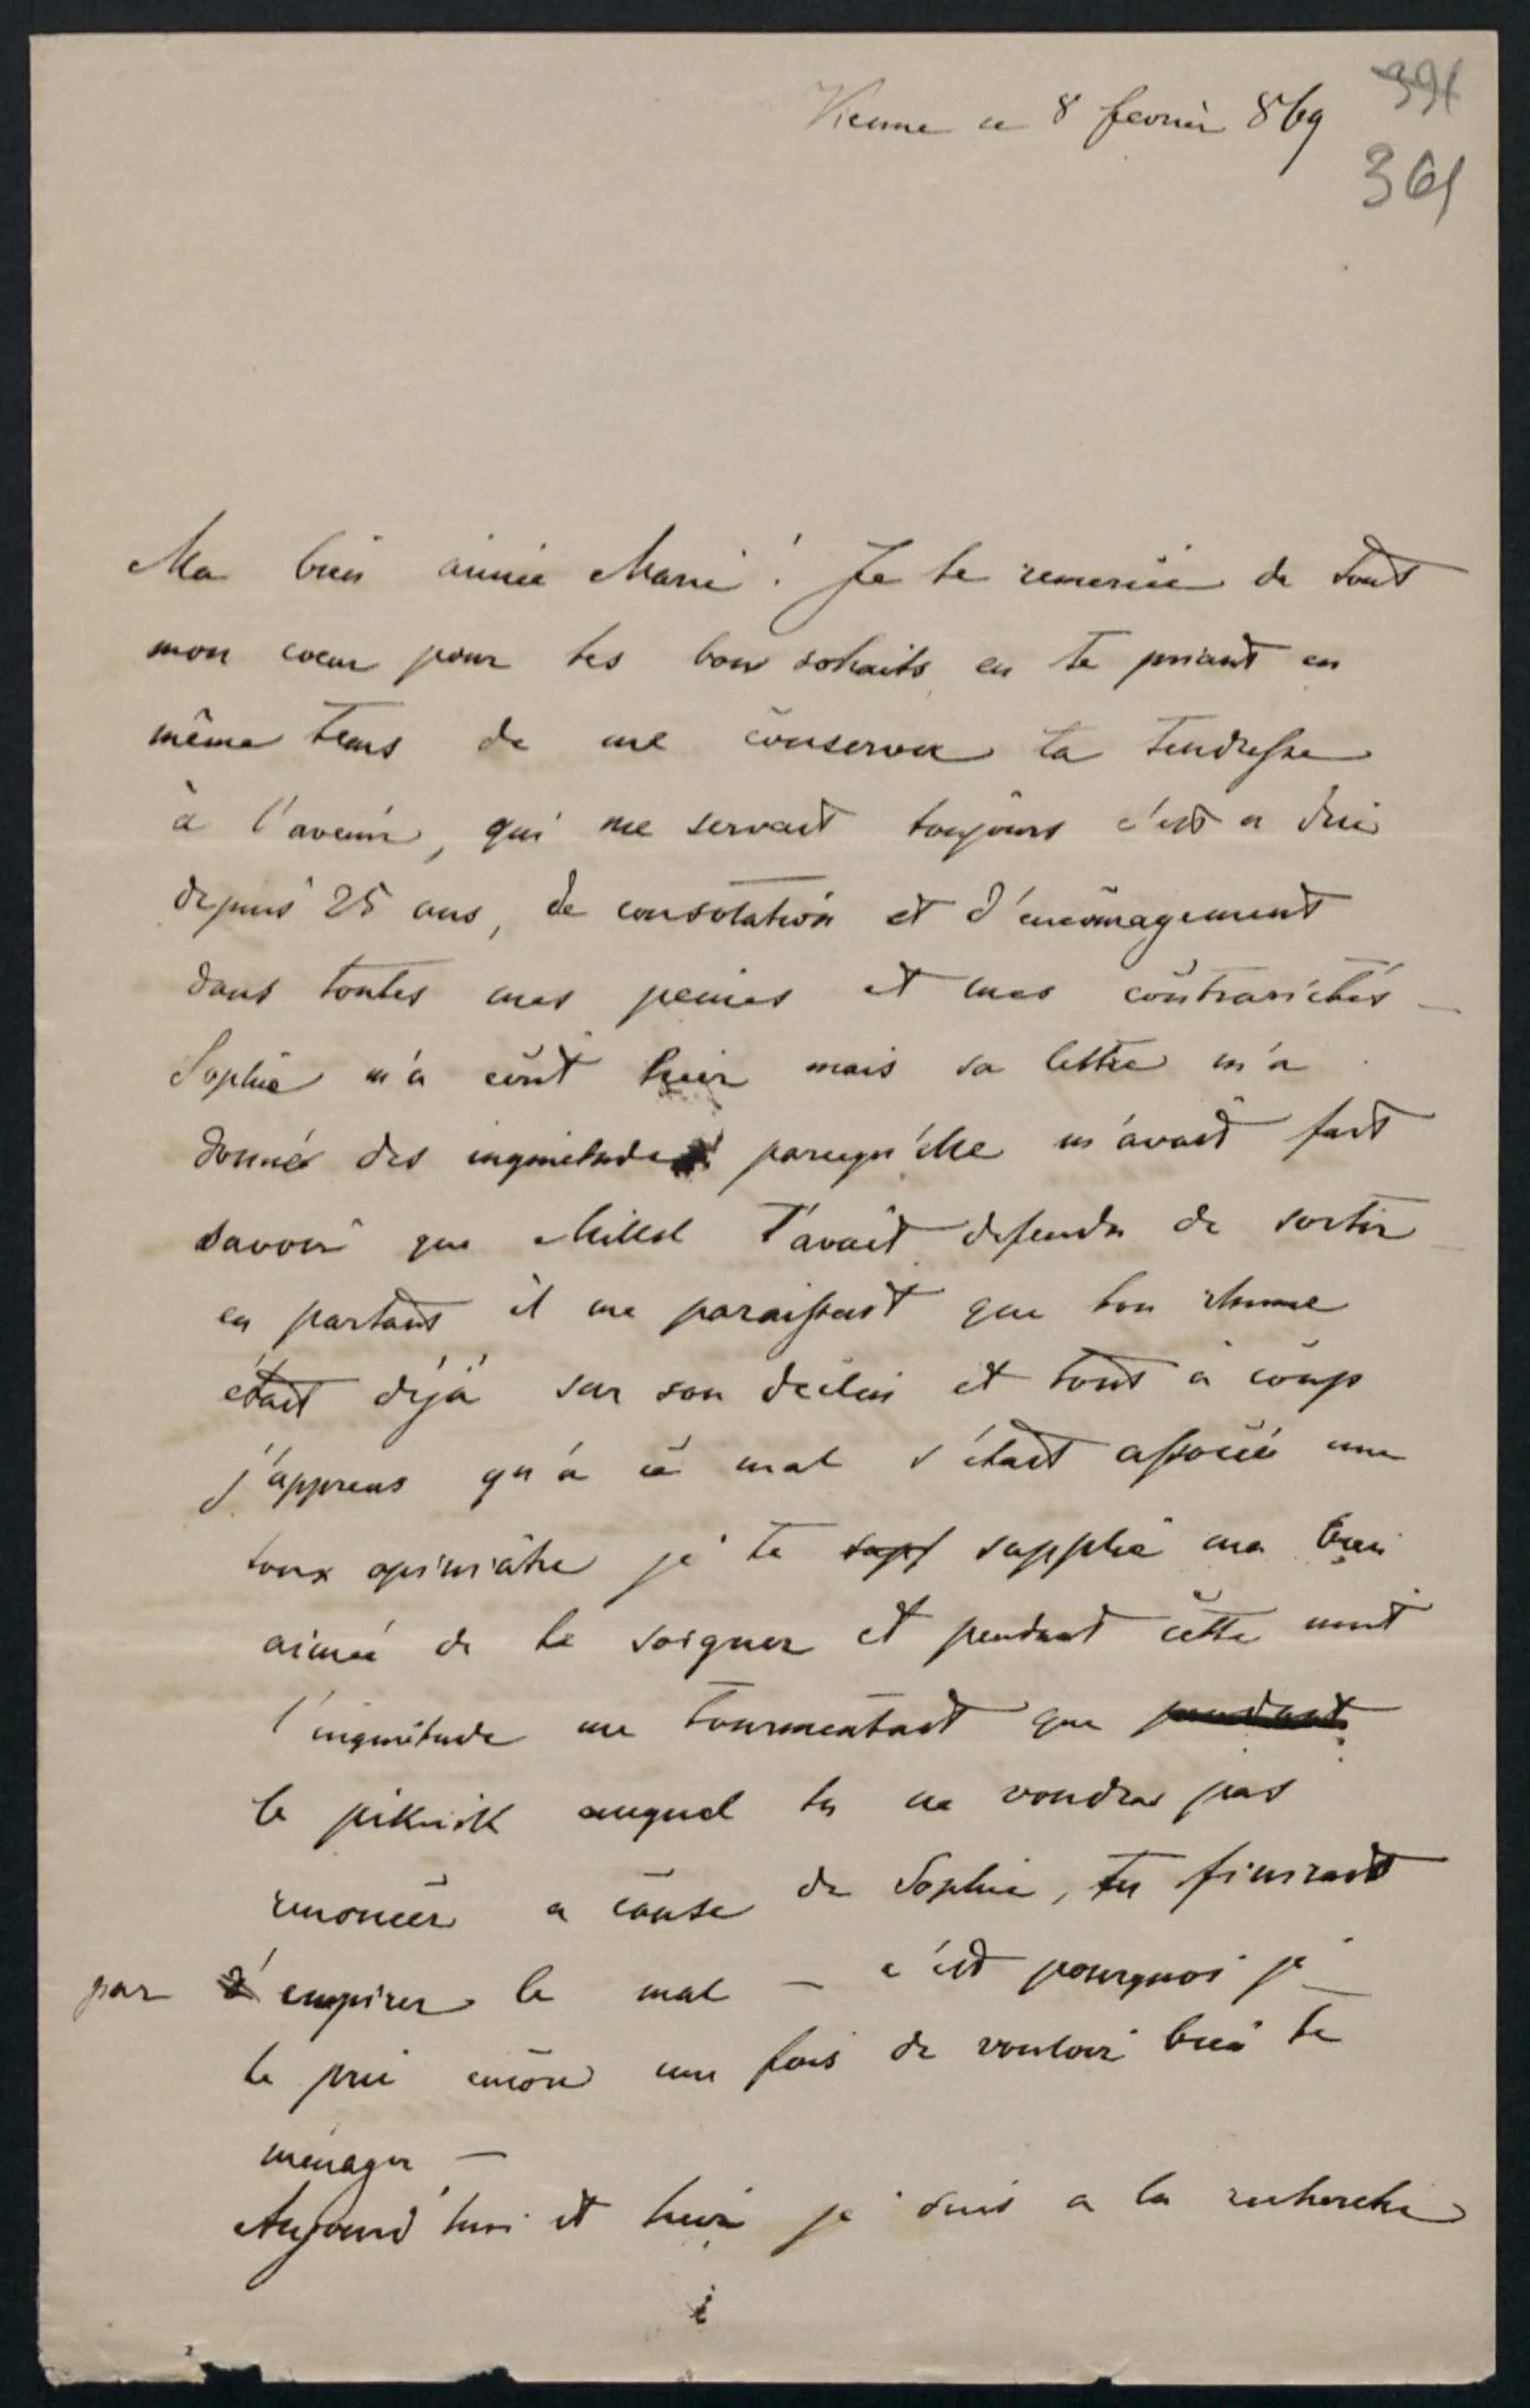 Vienne ce 8 fevrier 869
391
361
Ma bien aimée Marie! Je te remercie de tout
mon coeur pour tes bon sohaits en te priant en
même tems de me conserver ta tendresse
à l'avenir, qui me servait toujours c'est a dire
depuis 25 ans, de consolation et d'encouragement
dans toutes mes peines et mes contrariétés –
Sophie m'a écrit hier mais sa lettre m'a
donnée des inquietudes parcequ'elle m'avait fait
savoir que t'avait defendu de sortir –
en partant il me paraissait que ton rhume
était déjà sur son declin et tout à coup
j'apprens qu'à ce mal s'était associé une
toux opiniâtre je te supf supplie ma bien
aimée de te soigner et pendant cette nuit
l'inquiétude me tourmentait que pendant
le piknik auquel tu ne voudras pas
renoncer a cause de Sophie, tu finirait
par d'empirer le mal – c'est pourquoi je
te prie encore une fois de vouloir bien te
ménager –
Aujourd'hui et hier je suis a la recherche